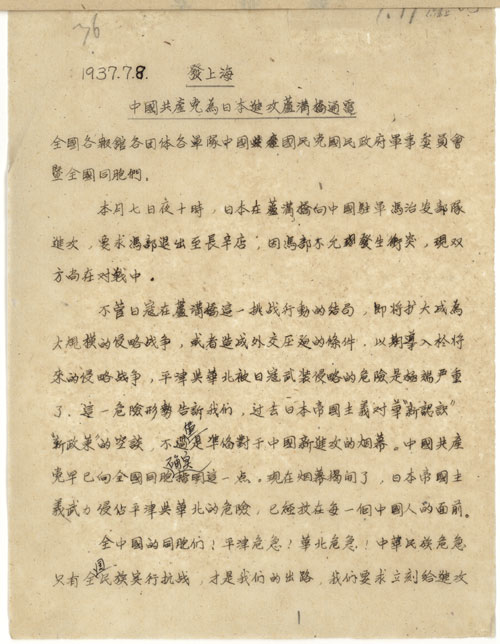 76
1937.7.8. 發上海
中國共產党為日本進攻蘆溝橋通電
全國各報館各团体各軍隊中國共產國民党國民政府軍事委員會
暨全國同胞們。
本月七日夜十時，日本在蘆溝橋向中國駐軍馮治安部隊
進攻，要求馮部退出至長辛店，因馮部不允發生衝突，現双
方尚在对戰中。
不管日寇在蘆溝橋這一挑战行動的結局，即将扩大成為
大規模的侵略战争，或者造成外交压廹的條件，以期導入於将
來的侵略战争，平津與華北被日寇武装侵略的危險是極端严重
了，這一危險形勢告訴我們，过去日本帝國主義对華“新認識”
“新政策”的空談，不過是準備對于中國新進攻的烟幕。中國共產
党早已向全國同胞指明這一点。現在烟幕揭開了，日本帝國主
義武力侵佔平津與華北的危險，已經放在每一個中國人的面前。
全中國的同胞們！平津危急！華北危急！中華民族危急
只有全民族实行抗战，才是我們的出路，我們要求立刻給進攻
1